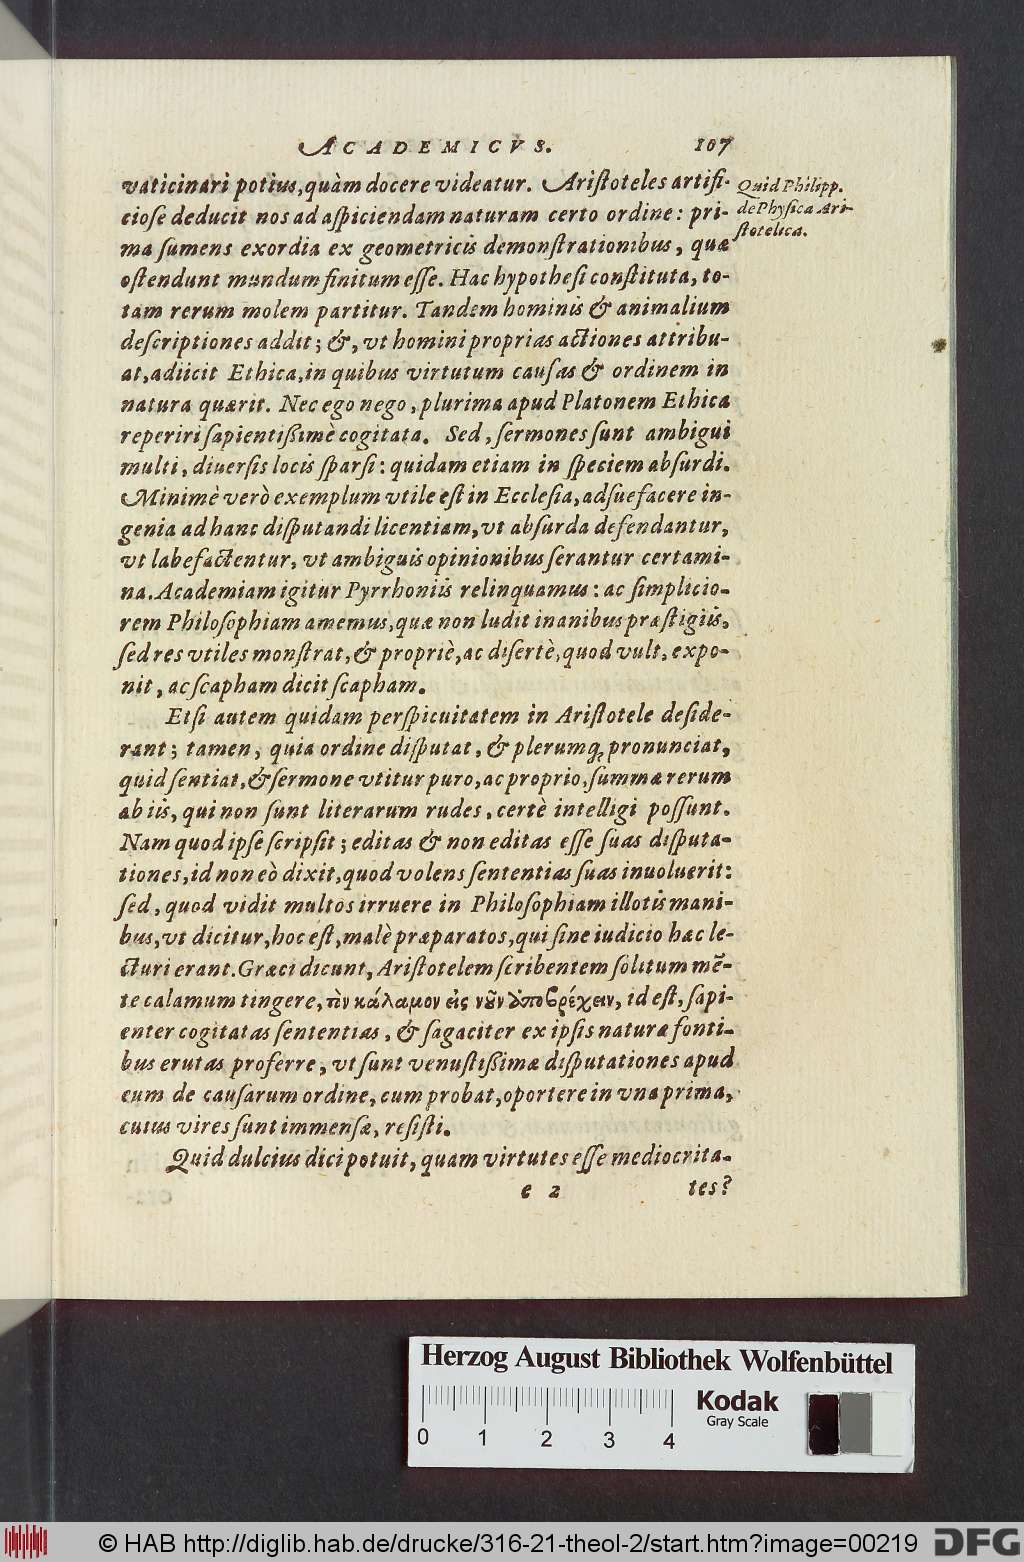 ACADEMICVS. 107
vaticinari potius, quàm docere videatur. Aristoteles artifi-
Quid Philipp.
de Physica Ari-
stotelica.
ciose deducit nos ad aspiciendam naturam certo ordine: pri-
ma sumens exordia ex geometricis demonstrationibus, quæ
ostendunt mundum finitum esse. Hac hypothesi constituta, to-
tam rerum molem partitur. Tandem hominis & animalium
descriptiones addit; &, vt homini proprias actiones attribu-
at, adiicit Ethica, in quibus virtutum causas & ordinem in
natura quærit. Nec ego nego, plurima apud Platonem Ethica
reperiri sapientißimè cogitata. Sed, sermones sunt ambigui
multi, diuersis locis sparsi: quidam etiam in speciem absurdi.
Minimè verò exemplum vtile est in Ecclesia, adsuefacere in-
genia ad hanc disputandi licentiam, vt absurda defendantur,
vt labefactentur, vt ambiguis opinionibus serantur certami-
na. Academiam igitur Pyrrhoniis relinquamus: ac simplicio-
rem Philosophiam amemus, quæ non ludit inanibus præstigiis,
sed res vtiles monstrat, & propriè, ac disertè, quod vult, expo-
nit, ac scapham dicit scapham.
Etsi autem quidam perspicuitatem in Aristotele deside-
rant; tamen, quia ordine disputat, & plerumq; pronunciat,
quid sentiat, & sermone vtitur puro, ac proprio, summæ rerum
ab iis, qui non sunt literarum rudes, certè intelligi possunt.
Nam quod ipse scripsit; editas & non editas esse suas disputa-
tiones, id non eò dixit, quod volens sententias suas inuoluerit:
sed, quod vidit multos irruere in Philosophiam illotis mani-
bus, vt dicitur, hoc est, malè præparatos, qui sine iudicio hæc le-
cturi erant. Græci dicunt, Aristotelem scribentem solitum mẽ-
te calamum tingere, τὴν κάλαμον εἰς νοῦν ἀποβρέχειν, id est, sapi-
enter cogitatas sententias, & sagaciter ex ipsis naturæ fonti-
bus erutas proferre, vt sunt venustißimæ disputationes apud
eum de causarum ordine, cum probat, oportere in vna prima,
cuius vires sunt immensæ, resisti.
Quid dulcius dici potuit, quam virtutes esse mediocrita-
e 2 tes?
Herzog August Bibliothek Wolfenbüttel
Kodak
Gray Scale
0 1 2 3 4
© HAB http://diglib.hab.de/drucke/316-21-theol-2/start.htm?image=00219
DFG